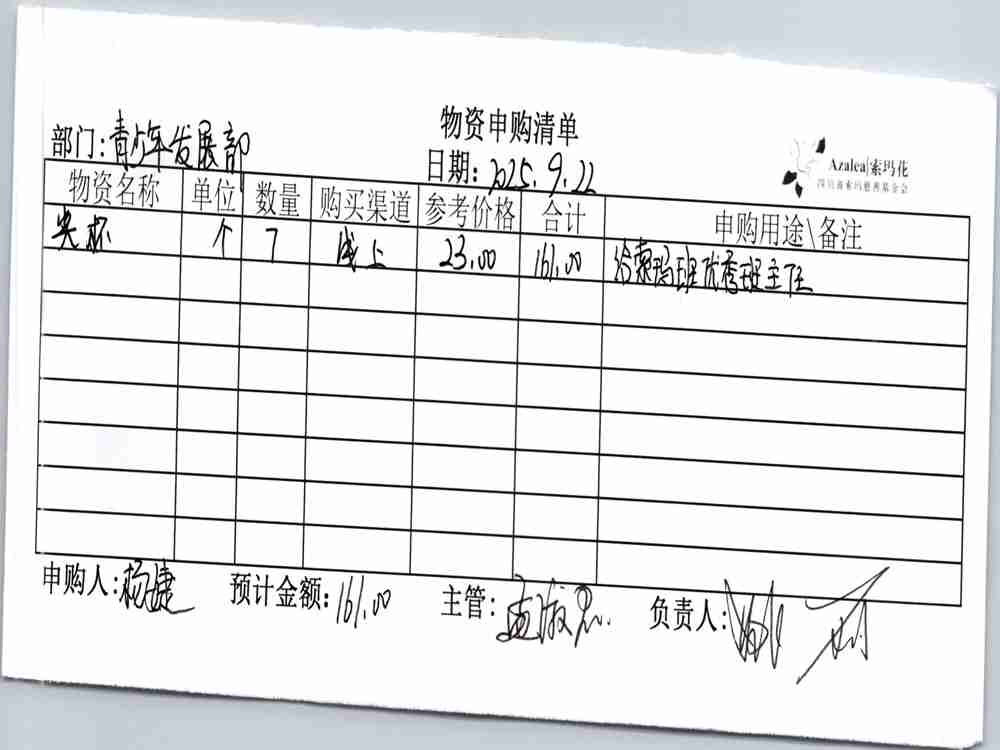 物资申购清单
Azalea|索玛花
四川省索玛慈善基金会
部门:青少年发展部
日期:2025.9.22
物资名称 单位 数量 购买渠道 参考价格 合计 申购用途\备注
奖杯 个 7 线上 23.00 161.00 给索玛班优秀班主任
申购人:杨婕 预计金额:161.00 主管: 负责人: